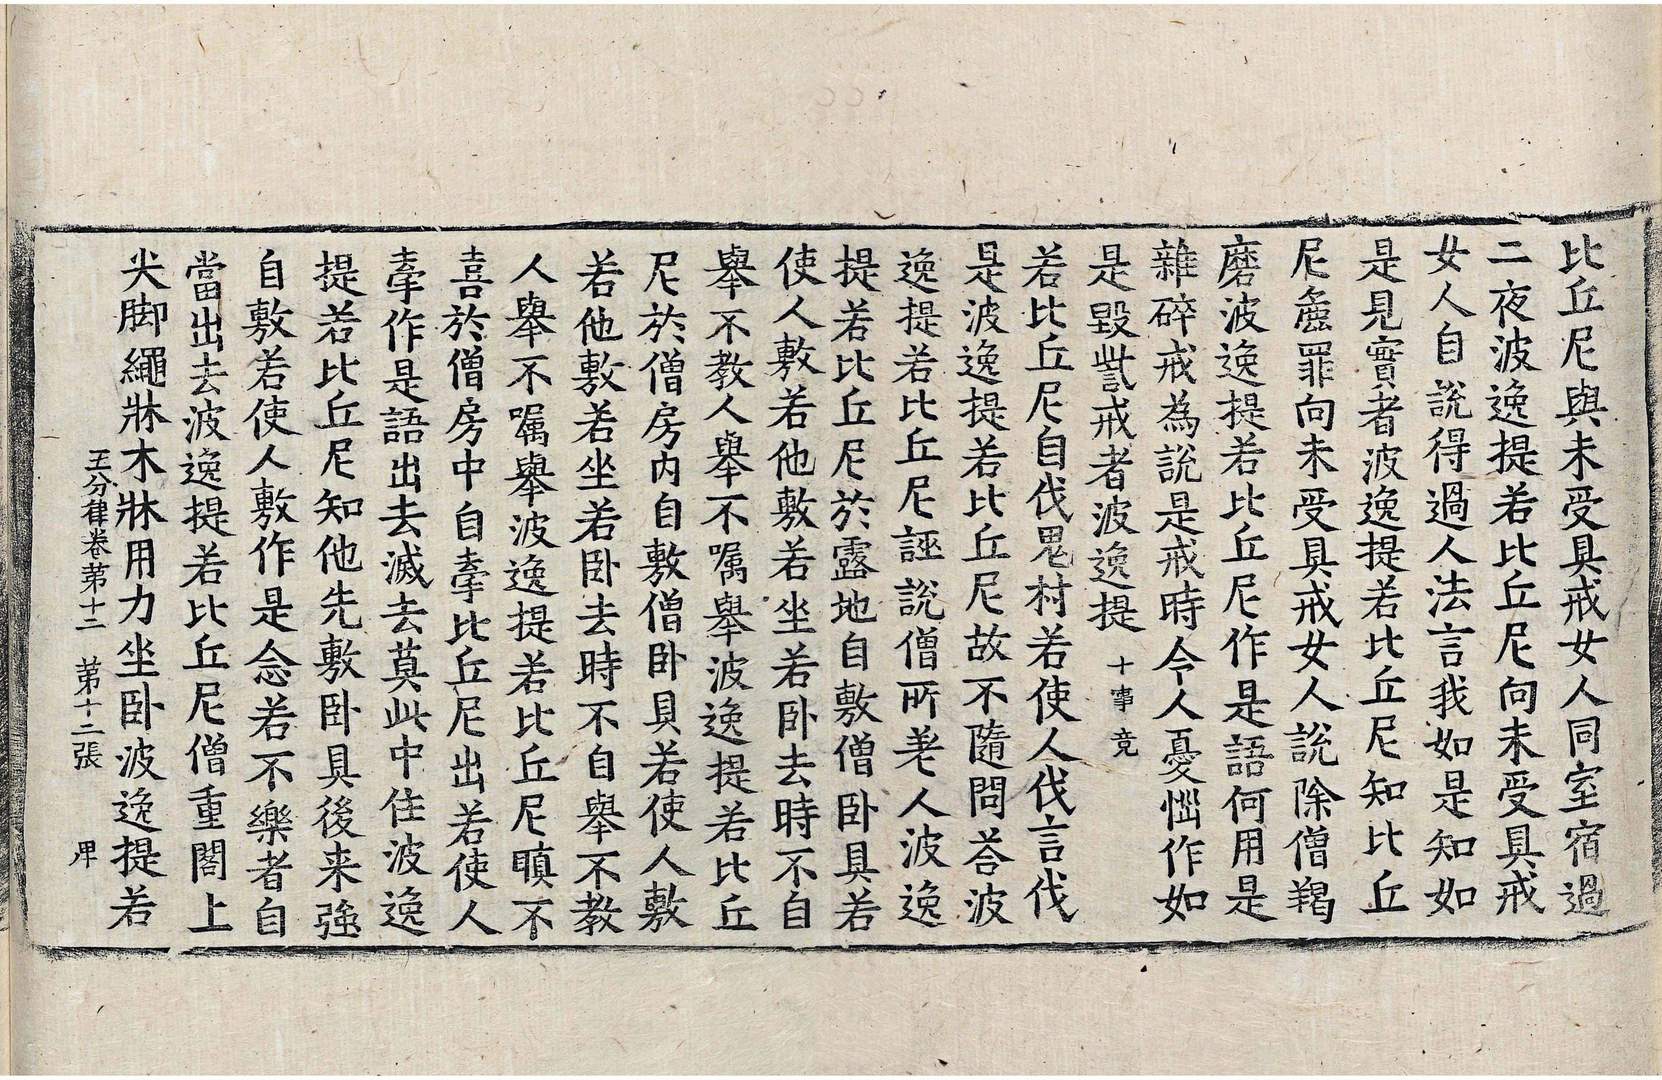 比丘尼與未受具戒女人同室宿過
二夜波逸提若比丘尼向未受具戒
女人自說得過人法言我如是知如
是見實者波逸提若比丘尼知比丘
尼麁罪向未受具戒女人說除僧羯
磨波逸提若比丘尼作是語何用是
雜碎戒為說是戒時令人憂惱作如
是毀呰戒者波逸提 十事竟
若比丘尼自伐鬼村若使人伐言伐
是波逸提若比丘尼故不隨問荅波
逸提若比丘尼誣說僧所差人波逸
提若比丘尼於露地自敷僧卧具若
使人敷若他敷若坐若卧去時不自
舉不教人舉不囑舉波逸提若比丘
尼於僧房內自敷僧卧具若使人敷
若他敷若坐若卧去時不自舉不教
人舉不囑舉波逸提若比丘尼瞋不
喜於僧房中自牽比丘尼出若使人
牽作是語出去滅去莫此中住波逸
提若比丘尼知他先敷卧具後来強
自敷若使人敷作是念若不樂者自
當出去波逸提若比丘尼僧重閣上
尖脚繩牀木牀用力坐卧波逸提若
五分律卷第十二 第十二張